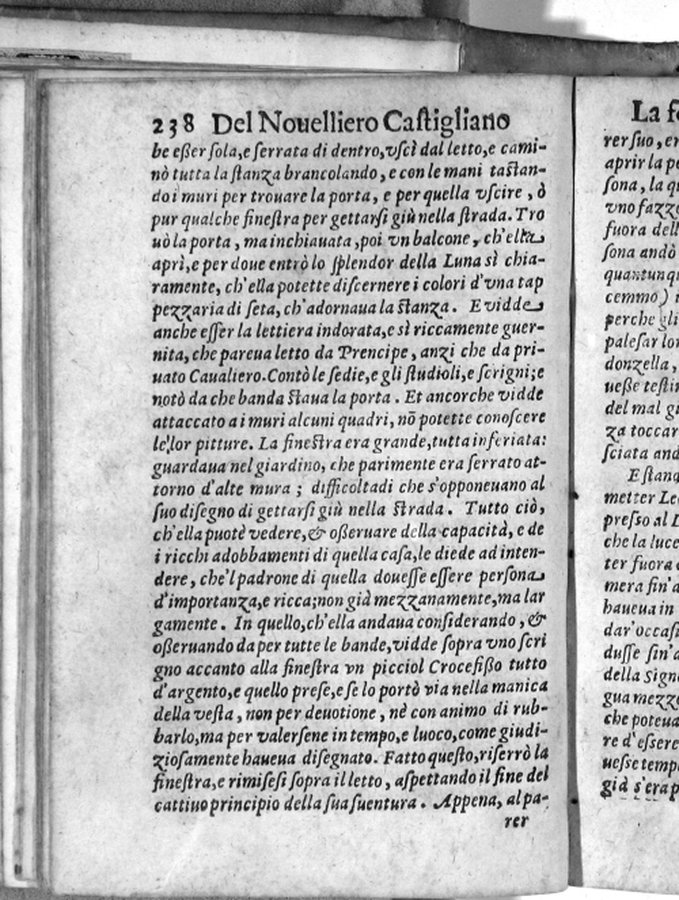 238 Del Nouelliero Castigliano
be eßer ſola,e ſerrata di dentro,vſcì dal letto,e cami-
nò tutta la ſtanza brancolando, e con le mani taſtan-
do i muri per trouare la porta, e per quella vſcire, ò
pur qualche fineſtra per gettarſi giù nella ſtrada. Tro
uò la porta, ma inchiauata, poi vn balcone, ch'ella
aprì, e per doue entrò lo ſplendor della Luna sì chia-
ramente, ch'ella potette diſcernere i colori d'vna tap
pezzaria di ſeta, ch'adornaua la ſtanza. E vidde
anche eſſer la lettiera indorata,e sì riccamente guer-
nita, che pareua letto da Prencipe, anzi che da pri-
uato Caualiero. Contò le ſedie, e gli ſtudioli,e ſcrigni;e
notò da che banda ſtaua la porta. Et ancorche vidde
attaccato a i muri alcuni quadri, nō potette conoſcere
le lor pitture. La fineſtra era grande,tutta inferiata:
guardaua nel giardino, che parimente era ſerrato at-
torno d'alte mura; difficoltadi che s'opponeuano al
ſuo diſegno di gettarſi giù nella ſtrada. Tutto ciò,
ch'ella puotè vedere,& oßeruare della capacità, e de
i ricchi adobbamenti di quella caſa,le diede ad inten-
dere, che'l padrone di quella doueſſe eſſere perſona
d'importanza,e ricca;non già mezzanamente,ma lar
gamente. In quello,ch'ella andaua conſiderando, &
oßeruando da per tutte le bande,vidde ſopra vno ſcri
gno accanto alla fineſtra vn picciol Crocefißo tutto
d'argento,e quello preſe,e ſe lo portò via nella manica
della veſta, non per deuotione, nè con animo di rub-
barlo,ma per valerſene in tempo,e luoco,come giudi-
zioſamente haueua diſegnato. Fatto queſto,riſerrò la
fineſtra,e rimiſeſi ſopra il letto, aſpettando il fine del
cattiuo principio della ſua ſuentura. Appena, al pa-
rer
La fo
rer ſuo, e
aprir la p
ſona, la q
vno fazz
fuora dell
ſona andò
quantunq
cemmo)
perche gli
paleſar lo
donzella,
ueße teſti
del mal g
za toccar
ſciata and
E ſtan
metter Le
preſſo al
che la luce
ter fuora
mera fin'a
haueua in
dar'occaſi
duſſe ſin'a
della Sign
gua mezz
che poteua
re d'eſſere
ueſſe temp
già s'era p